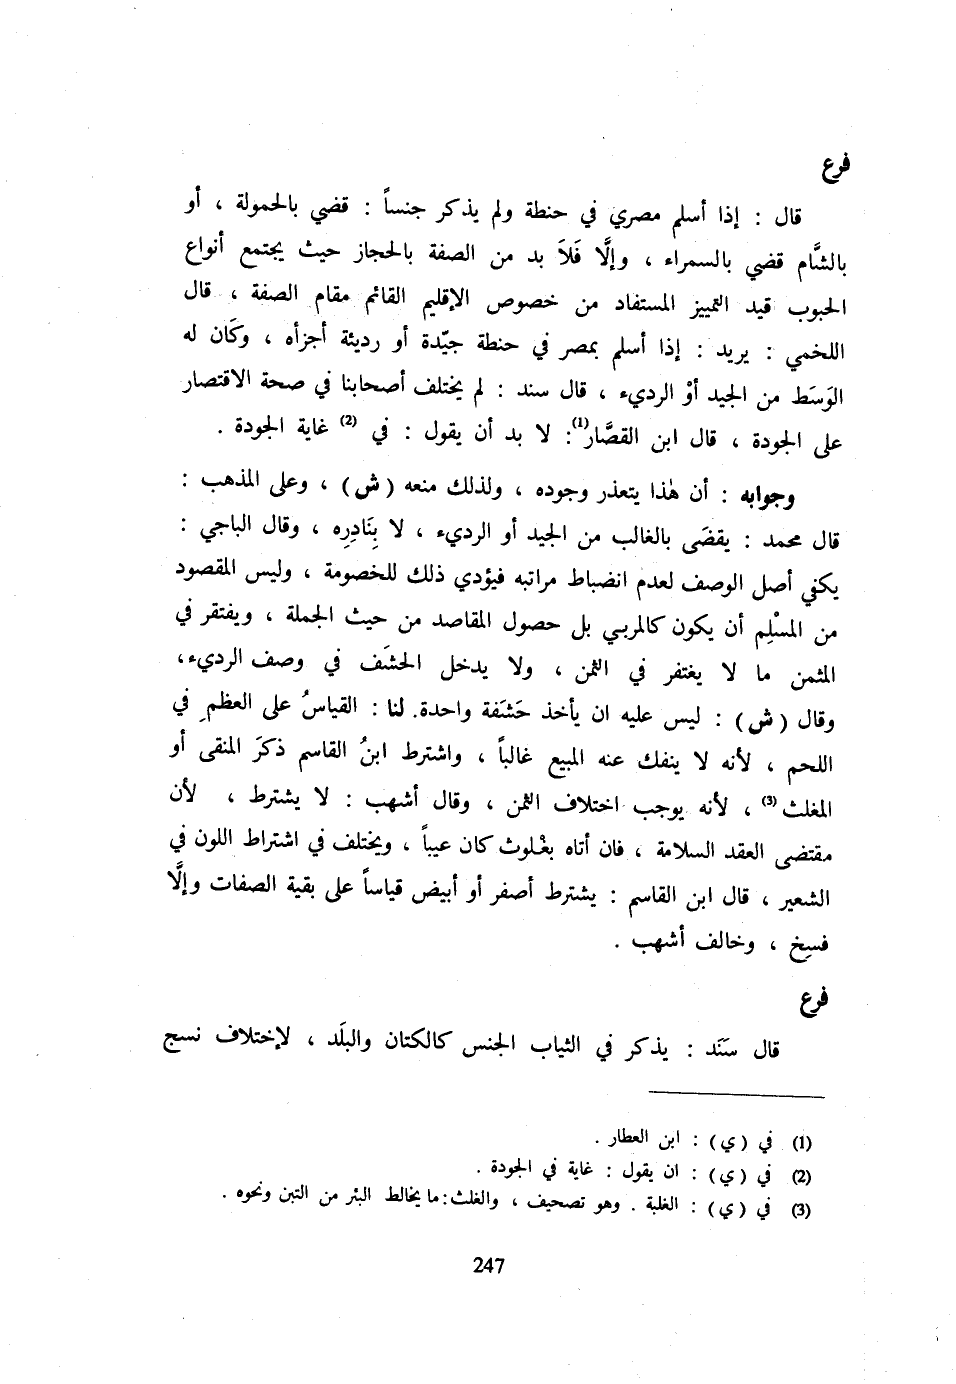 فرع
قال : إذا أسلم مصري في حنطة ولم يذكر جنساً : قضي بالحمولة ، أو
بالشَّام قضي بالسمراء ، وإلَّا فَلاَ بد من الصفة بالحجاز حيث يجتمع أنواع
الحبوب قيد التمييز المستفاد من خصوص الإقليم القائم مقام الصفة ، قال
اللخمي : يريد : إذا أسلم بمصر في حنطة جيّدة أو رديئة أجزأه ، وكَان له
الوَسَط من الجيد أوْ الرديء ، قال سند : لم يختلف أصحابنا في صحة الاقتصار
على الجودة ، قال ابن القصَّار(1): لا بد أن يقول : في (2) غاية الجودة .
وجوابه : أن هٰذا يتعذر وجوده ، ولذلك منعه ( ش ) ، وعلى المذهب :
قال محمد : يقضَى بالغالب من الجيد أو الرديء ، لا بِنَادِرِه ، وقال الباجي :
يكفي أصل الوصف لعدم انضباط مراتبه فيؤدي ذلك للخصومة ، وليس المقصود
من المسْلِم أن يكون كالمربي بل حصول المقاصد من حيث الجملة ، ويفتقر في
المثمن ما لا يغتفر في الثمن ، ولا يدخل الحشَف في وصف الرديء،
وقال ( ش ) : ليس عليه ان يأخذ حَشَفة واحدة. لنا : القياسُ على العظمِ في
اللحم ، لأنه لا ينفك عنه المبيع غالباً ، واشترط ابنُ القاسم ذكرَ المنقى أو
المغلث(3) ، لأنه يوجب اختلاف الثمن ، وقال أشهب : لا يشترط ، لأن
مقتضى العقد السلامة ، فان أتاه بغْلوث كان عيباً ، ويختلف في اشتراط اللون في
الشعير ، قال ابن القاسم : يشترط أصفر أو أبيض قياساً على بقية الصفات وإلَّا
فسِخ ، وخالف أشهب .
فرع
قال سَنَد : يذكر في الثياب الجنس كالكتان والبلَد ، لإختلاف نسج
(1) في ( ي ) : ابن العطار .
(2) في ( ي ) : ان يقول : غاية في الجودة .
(3) في ( ي ) : الغلبة . وهو تصحيف ، والغلث: ما يخالط البئر من التبن ونحوه .
247